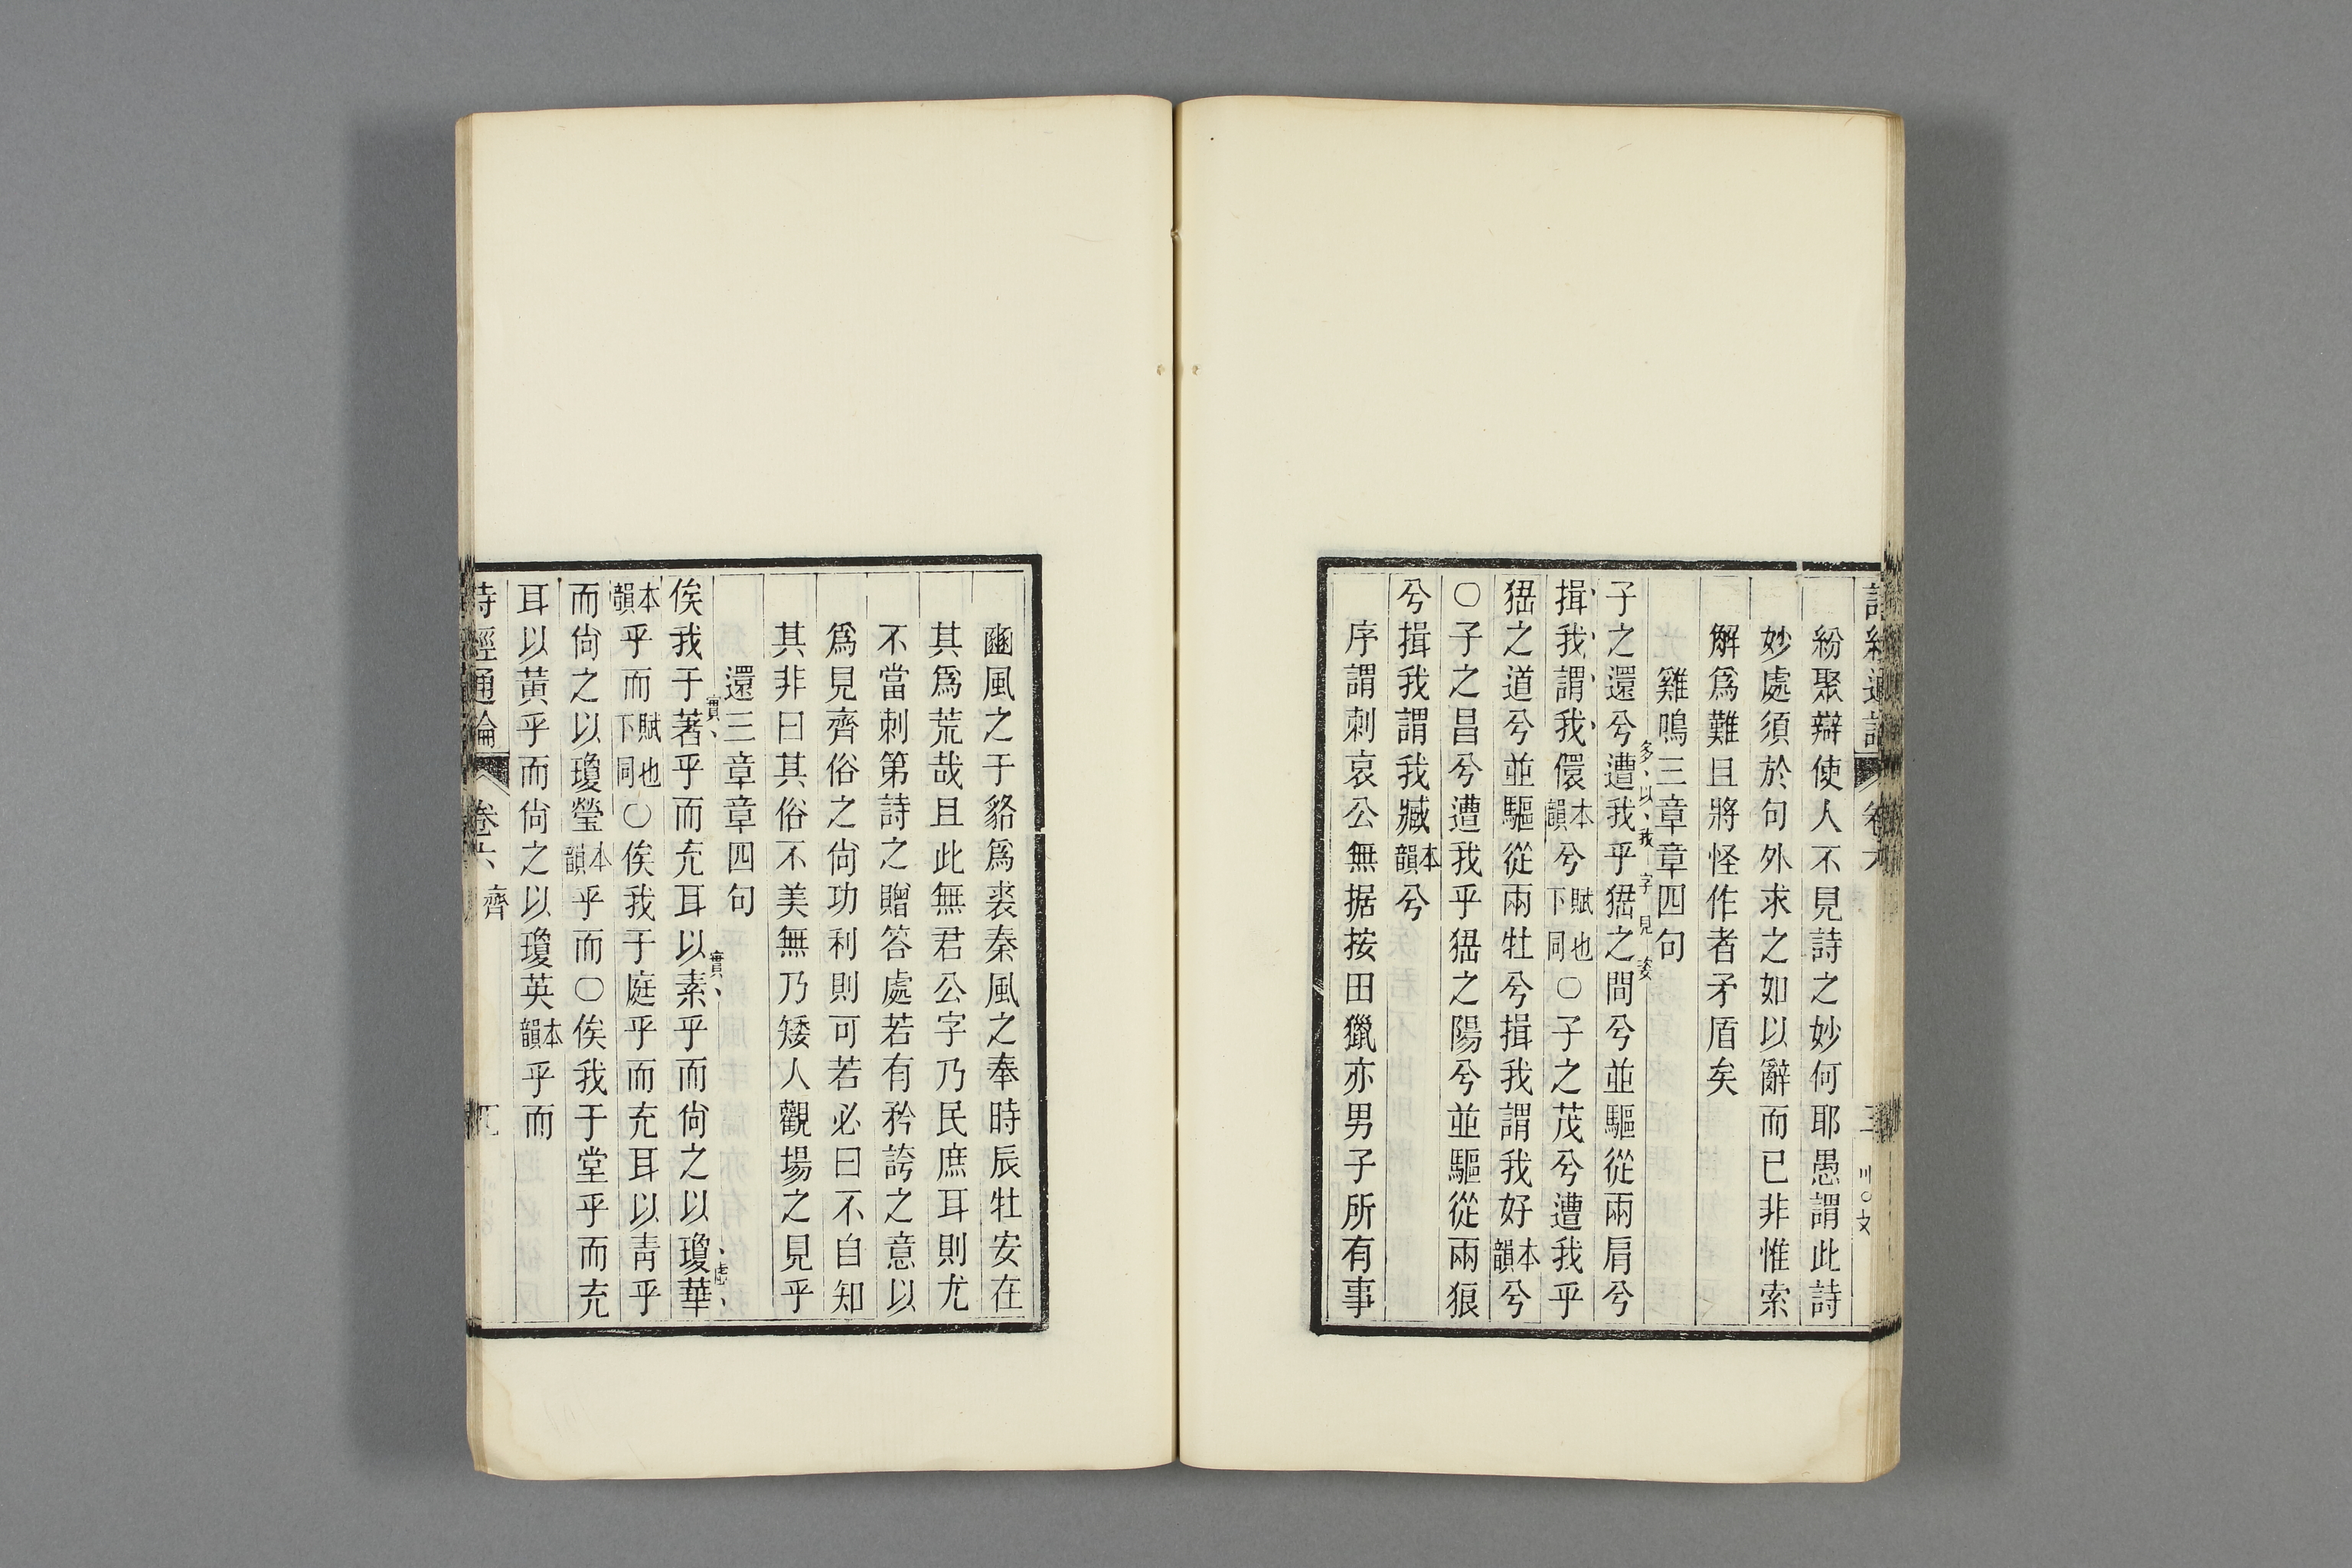 紛聚辯使人不見詩之妙何耶愚謂此詩
妙處須於句外求之如以辭而已非惟索
解爲難且將怪作者矛盾矣
雞鳴三章章四句
多以我字見姿
子之還兮遭我乎猺之間兮並驅從兩肩兮
揖我謂我儇本韻兮賦也下同○子之茂兮遭我乎
猺之道兮並驅從兩牡兮揖我謂我好本韻兮
○子之昌兮遭我乎猺之陽兮並驅從兩狼
兮揖我謂我臧本韻兮
序謂刺哀公無据按田獵亦男子所有事
豳風之于貉爲裘秦風之奉時辰牡安在
其爲荒哉且此無君公字乃民庶耳則尤
不當刺第詩之贈答處若有矜誇之意以
爲見齊俗之尙功利則可若必曰不自知
其非曰其俗不美無乃矮人觀場之見乎
還三章章四句
實、實、虛、
俟我于著乎而充耳以素乎而尙之以瓊華
本韻乎而賦也下同○俟我于庭乎而充耳以靑乎
而尙之以瓊瑩本韻乎而○俟我于堂乎而充
耳以黃乎而尙之以瓊英本韻乎而
詩經通論 卷六、齊